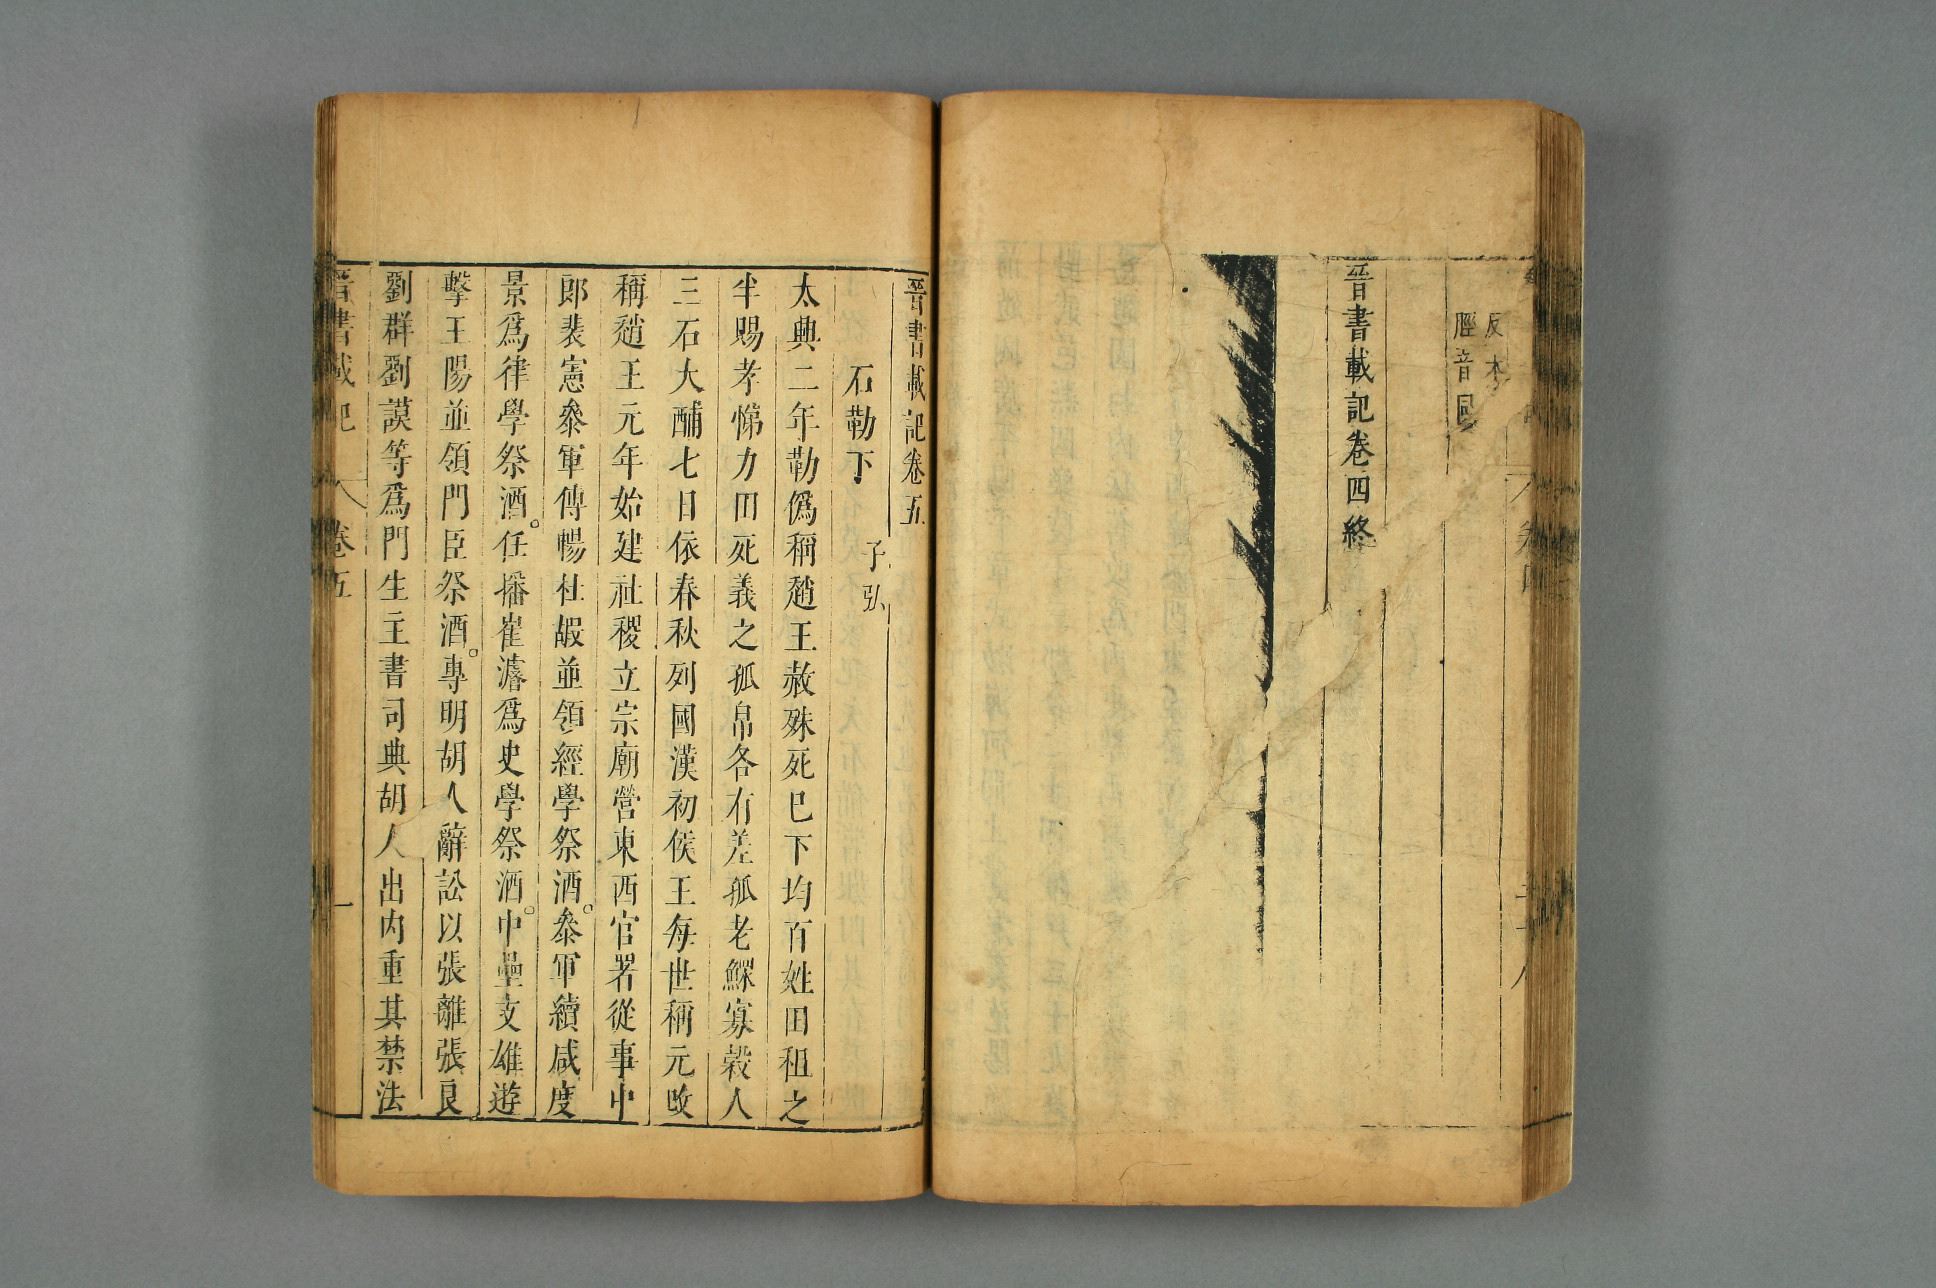 反木
脛音
晉書載記卷四終
晉書載記卷五
石勒下
子弘
太興二年勒僞稱趙王赦殊死已下均百姓田租之
半賜孝悌力田死義之孤帛各有差孤老鰥寡穀人
三石大酺七日依春秋列國漢初侯王每世稱元改
稱趙王元年始建社稷立宗廟營東西官署從事中
郎裴憲叅軍傅暢杜嘏並領經學祭酒。叅軍續咸庾
景爲律學祭酒。任播崔濬爲史學祭酒。中壘支雄遊
擊王陽並領門臣祭酒。專明胡人辭訟以張離張良
劉群劉謨等爲門生主書司典胡人出内重其禁法
晉書載記
卷五
一